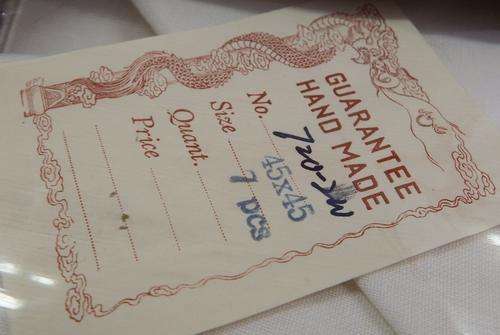 GUARANTEE
HAND MADE
No. 720-YW
Size 45x45
Quant. 7 pcs
Price